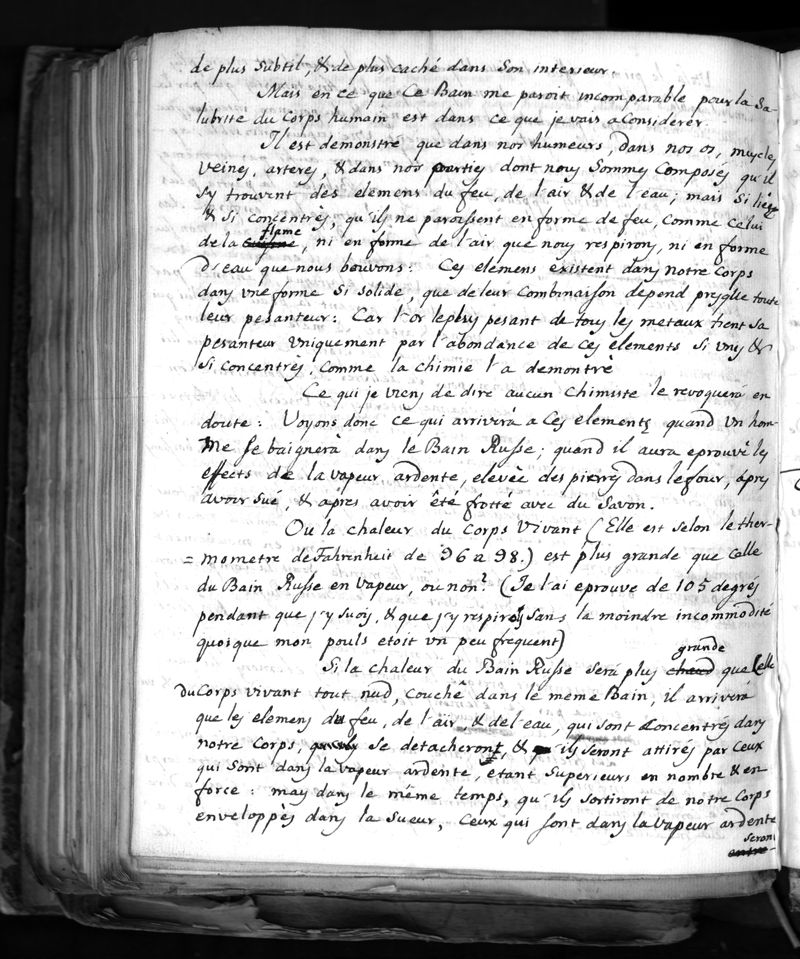 de plus subtil, & de plus caché dans son interieur.
Mais en ce que ce Bain me paroit incomparable pour la Sa-
lubrité du Corps humain est dans ce que je vais a Considerer.
Il est demonstré que dans nos humeurs, dans nos os, muscles
veines, arteres, & dans nos parties dont nous Sommes Composés qu'il
s'y trouvent des elemens du feu, de l'air & de l'eau; mais si liés
& si concentrés, qu'ils ne paroissent en forme de feu, comme celui
flame
de la, ni en forme de l'air que nous respirons, ni en forme
d'eau que nous beuvons: Ces elemens existent dans notre Corps
dans une forme si solide, que de leur Combinaison depend presque toute
leur pesanteur: Car l'or le plus pesant de tous les metaux tient sa
pesanteur uniquement par l'abondance de ces elements si unis &
si concentrès, comme la chimie l'a demontrè
Ce qui je viens de dire aucun Chimiste le revoquerá en
doute: Voyons donc ce qui arriverà a Ces elements quand un hom-
me se baignerà dans le Bain Russe; quand il aura eprouvè les
effects de la vapeur ardente, elevèe des pierres dans le four, ápres
avoir sué, & ápres avoir êté frotté avec du Savon.
Ou la chaleur du Corps Vivant (Elle est selon le ther-
= mometre de Fahrenheit de 96 a 98.) est plus grande que celle
du Bain Russe en vapeur, ou non? (Je l'ai eprouve de 105 degrés
pendant que j'y suois, & que j'y respirois sans la moindre incommodité
quoique mon pouls etoit un peu frequent)
grande
Si la chaleur du Bain Russe será plus chaud que celle
du Corps vivant tout nud, couchê dans le meme Bain, il arriverá
que les elemens du feu, de l'air, & de l'eau, qui sont Concentrés dans
notre Corps, se detacheront, & ils seront attirés par ceux
qui sont dans la vapeur ardente, etant superieurs en nombre & en
force: mais dans le même temps, qu'ils sortiront de notre Corps
enveloppès dans la sueur, Ceux qui sont dans la vapeur ardente
seront
entre